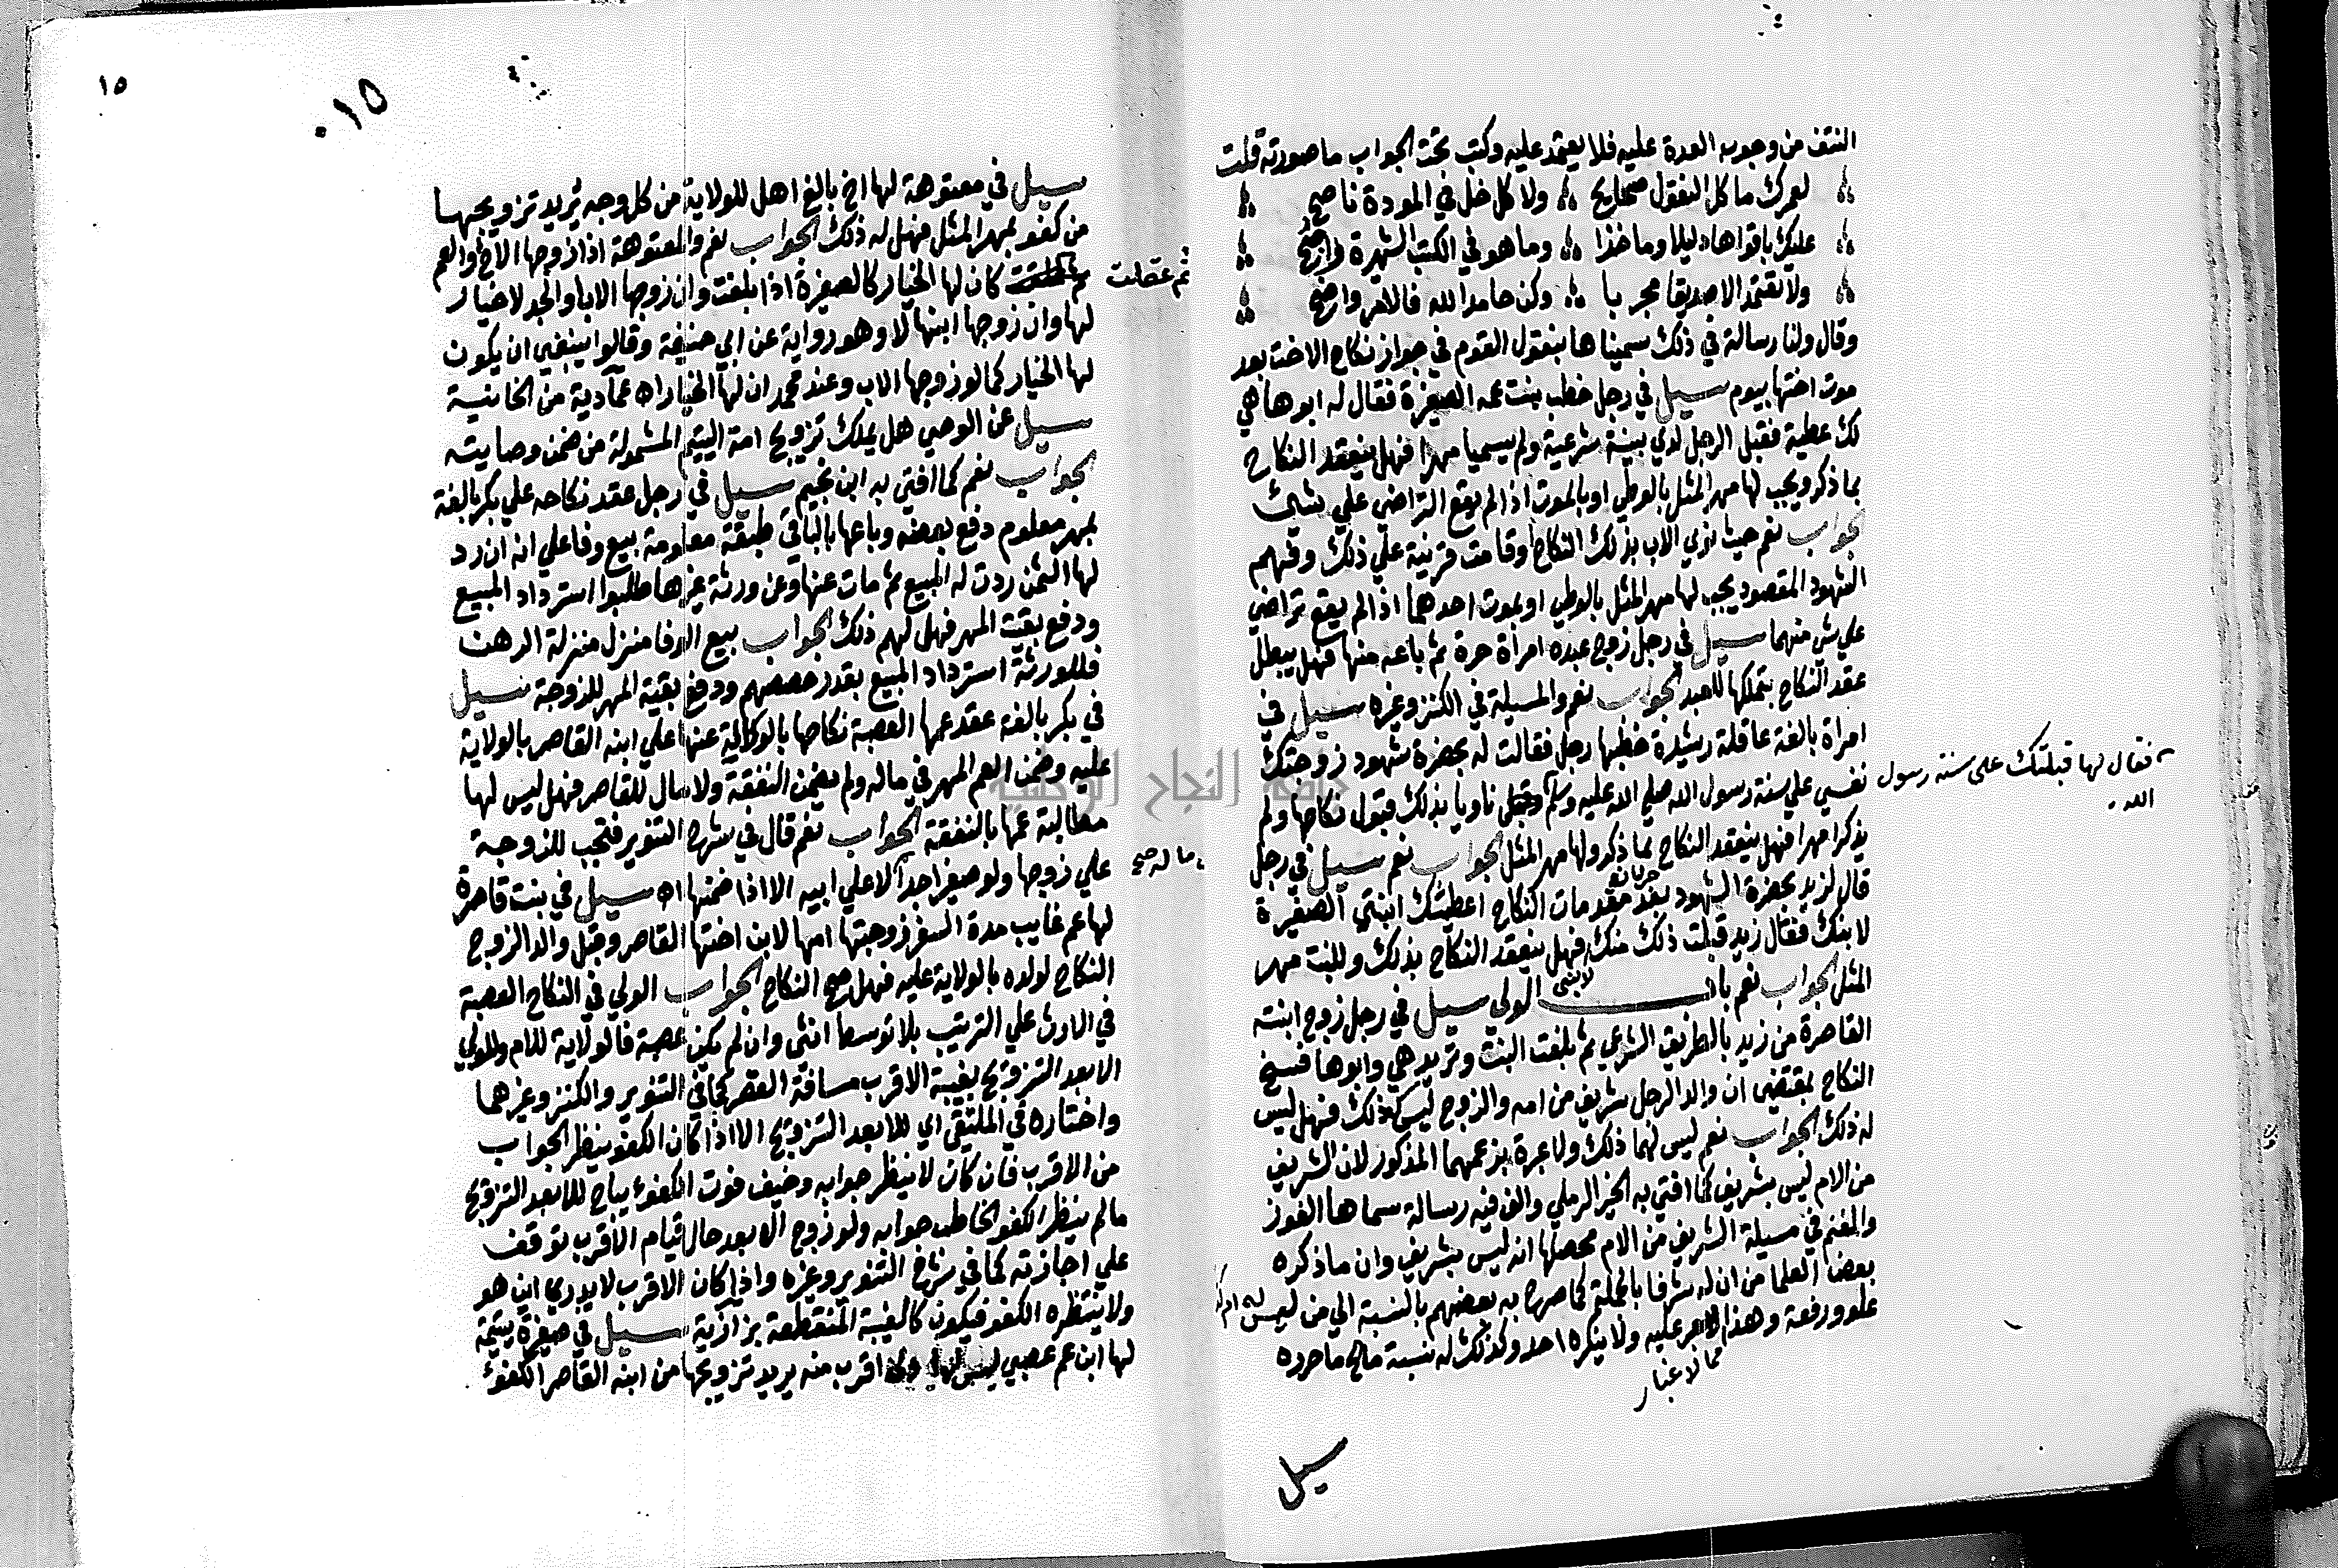 النتف من وجوب العدة عليه فلا يعتمد عليه وكتب تحت الجواب ما صورته قلت
لعمرك ما كل النقول صحايح ولا كل خل في المودة ناصح
عليك باقواها دليلا وماخذا وما هو في الكتب الشهيرة واضح
ولا تعتمد الا صديقا مجربا وكن حامدا لله فالامر واضح
وقال ولنا رسالة في ذلك سميناها بنقول القوم في جواز نكاح الاخت بعد
موت اختها بيوم سيل في رجل خطب بنت عمه الصغيرة فقال له ابوها هي
لك عطية فقبل الرجل لدي بينة شرعية ولم يسميا مهرا فهل ينعقد النكاح
بما ذكر ويجب لها مهر المثل بالوطي او بالموت اذا لم يقع التراضي علي شيئ
الجواب نعم حيث نوي الاب بذلك النكاح او قامت قرينة علي ذلك وفهم
الشهود المقصود يجب لها مهر المثل بالوطي او بموت احدهما اذا لم يقع تراضي
علي شي منهما سيل في رجل زوج عبده امراة حرة ثم باعه منها فهل يبطل
عقد النكاح بتملكها للعبد الجواب نعم والمسيلة في الكنز وغيره سيل في
امراة بالغة عاقلة رشيدة خطبها رجل فقالت له بحضرة شهود زوجتك
نفسي علي سنة رسول الله صلي الله عليه وسلم ناويا بذلك قبول نكاحها ولم
فقال لها قبلتك على سنة رسول
الله
يذكرا مهرا فهل ينعقد النكاح بما ذكر ولها مهر المثل الجواب نعم سيل في رجل
قال لزيد بحضرة الشهود بعد جريان مقدمات النكاح اعطيتك ابنتي الصغيرة
لابنك فقال زيد قبلت ذلك منك لابني فهل ينعقد النكاح بذلك وللبنت مهر
المثل الجواب نعم باب الولي سيل في رجل زوج ابنته
القاصرة من زيد بالطريق الشرعي ثم بلغت البنت وتريد هي وابوها فسخ
النكاح بمقتضي ان والد الرجل شريف من امه والزوج ليس كذلك فهل ليس
له ذلك الجواب نعم ليس لهما ذلك ولا عبرة بزعمهما المذكور لان الشريف
من الام ليس بشريف كما افتي به الخير الرملي والف فيه رسالة سماها الفوز
والغنم في مسيلة الشريف من الام محصلها انه ليس بشريف وان ما ذكره
بعض العلما من ان له شرفا بالجملة كما صرح به بعضهم بالنسبة الي من ليس له ام كذا
علو ورفعة وهذا مما لا غبار عليه ولا ينكره احد وكذلك له نسبة ما ما حرره
سيل
١٥
٠١٥
سيل في معتوهة لها اخ بالغ اهل للولاية من كل وجه يريد تزويجها
من كفو بمهر المثل فهل له ذلك الجواب نعم والمعتوهة اذا زوجها الاخ والعم
ثم عقلت كان لها الخيار كالصغيرة اذا بلغت وان زوجها الاب او الجد لا خيار
لها وان زوجها ابنها لا وهو رواية عن ابي حنيفة وقالوا ينبغي ان يكون
لها الخيار كما لو زوجها الاب وعند محمد ان لها الخيار اه عمادية من الخانية
سيل عن الوصي هل يملك تزويج امة اليتيم المشمولة من ضمن وصايته
الجواب نعم كما افتي به ابن نجيم سيل في رجل عقد نكاحه علي بكر بالغة
بمهر معلوم دفع بعضه وباعها بالباقي طبقة معلومة بيع وفا علي انه ان رد
لها الثمن ردت له المبيع ثم مات عنها وعن ورثة غيرها طلبوا استرداد المبيع
ودفع بقية المهر فهل لهم ذلك الجواب بيع الوفا منزل منزلة الرهن
فللورثة استرداد المبيع بقدر حصصهم ودفع بقية المهر للزوجة سيل
في بكر بالغة عقد عمها العصبة نكاحها بالوكالة عنها علي ابنه القاصر بالولاية
عليه وضمن العم المهر في ماله ولم يضمن النفقة ولا مال للقاصر فهل ليس لها
مطالبة عمها بالنفقة الجواب نعم قال في شرح التنوير فتجب للزوجة
علي زوجها ولو صغيرا جدا لا علي ابيه الا اذا ضمنها اه سيل في بنت قاصرة
ماله صح
لها عم غايب مدة السفر زوجتها امها لابن اختها القاصر وقبل والد الزوج
النكاح لولده بالولاية عليه فهل صح النكاح الجواب الولي في النكاح العصبة
في الارث علي الترتيب بلا توسط انثي وان لم يكن عصبة فالولاية للام وللولي
الابعد التزويج بغيبة الاقرب مسافة القصر كما في التنوير والكنز وغيرهما
واختاره في الملتقي اي للابعد التزويج الا اذا كان الكفو ينظر الجواب
من الاقرب فان كان لا ينظر جوابه وخيف فوت الكفوء يباح للابعد التزويج
ما لم ينظر الكفو الخاطب جوابه ولو زوج الابعد حال قيام الاقرب توقف
علي اجازته كما في شرح التنوير وغيره واذا كان الاقرب لا يدري اين هو
ولا ينتظره الكفو فيكون كالغيبة المنقطعة بزازية سيل في صغيرة يتيمة
لها ابن عم عصبي ليس لها ولي اقرب منه يريد تزويجها من ابنه القاصر الكفوء
جامعة النجاح الوطنية